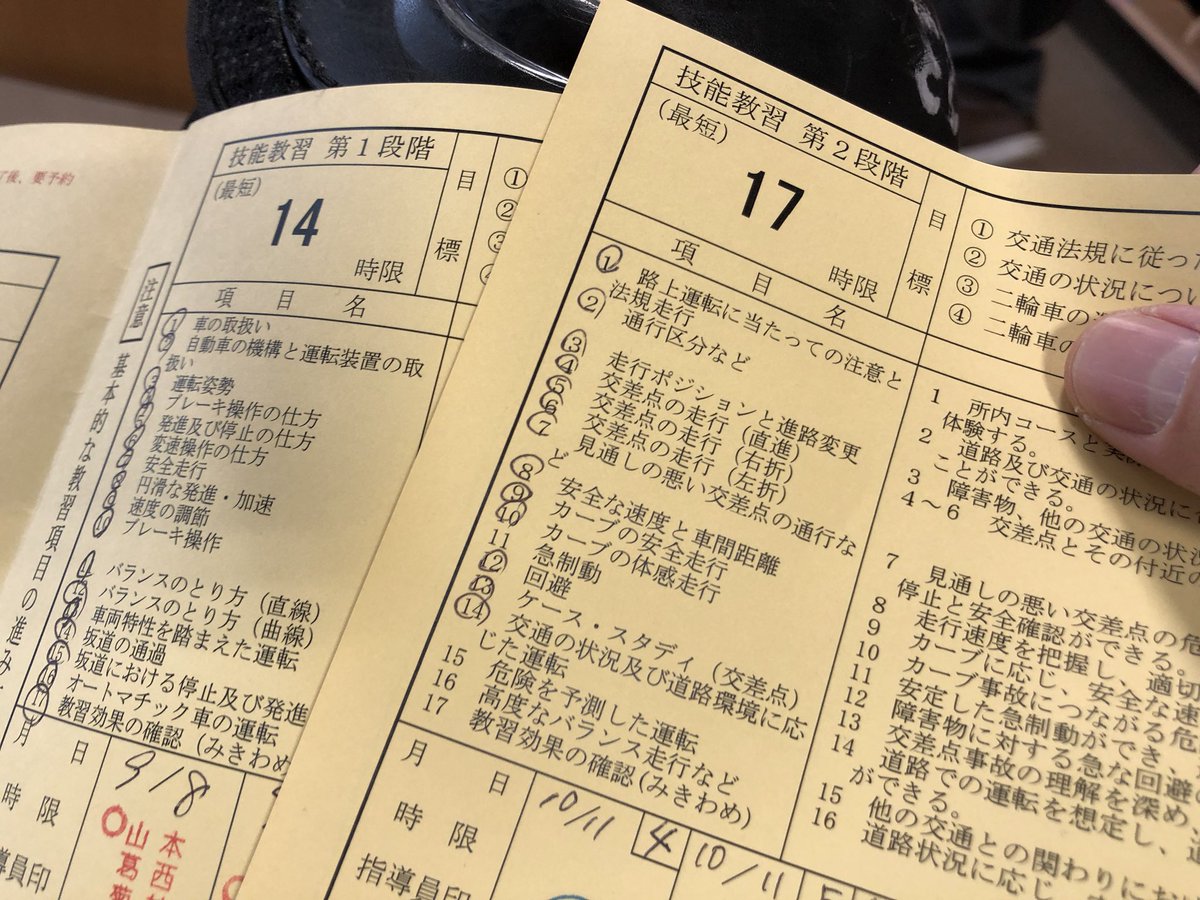 了後、要予約
技能教習 第1段階
(最短)
14
時限
目標
①
②
③
項目名
注意
基本的な教習項目の進み
1 車の取扱い
2 自動車の機構と運転装置の取
扱い
3 運転姿勢
4 ブレーキ操作の仕方
5 発進及び停止の仕方
6 変速操作の仕方
7 安全走行
8 円滑な発進・加速
9 速度の調節
10 ブレーキ操作
11 バランスのとり方(直線)
12 バランスのとり方(曲線)
13 車両特性を踏まえた運転
14 坂道の通過
15 坂道における停止及び発進
16 オートマチック車の運転
17 教習効果の確認(みきわめ
月 日
9/8
時限
導員印
技能教習 第2段階
(最短)
17
時限
目標
① 交通法規に従った
② 交通の状況につい
③ 二輪車の
④ 二輪車の
項目名
1 路上運転に当たっての注意と
法規走行
2 通行区分など
3 走行ポジションと進路変更
4 交差点の走行(直進)
5 交差点の走行(右折)
6 交差点の走行(左折)
7 見通しの悪い交差点の通行な
ど
8 安全な速度と車間距離
9 カーブの安全走行
10 カーブの体感走行
11 急制動
12 回避
13 ケース・スタディ(交差点)
14 交通の状況及び道路環境に応
じた運転
15 危険を予測した運転
16 高度なバランス走行など
17 教習効果の確認(みきわめ)
月 日
10/11
4
10/11
時限
指導員印
1 所内コースと
体験する。
2 道路及び交通の状況に
ことができる。
3 障害物、他の交通の状況
4～6 交差点とその付近の
7 見通しの悪い交差点の危
停止と安全確認ができる。
8 走行速度を把握し、適切
9 カーブに応じ、安全な速
10 カーブ事故につながる危
11 安定した急制動ができ、
12 障害物に対する急な回避
13 交差点事故の理解を深め、
14 道路での運転を想定し、道
ができる。
15 他の交通との関わりにお
16 道路状況に応じ、